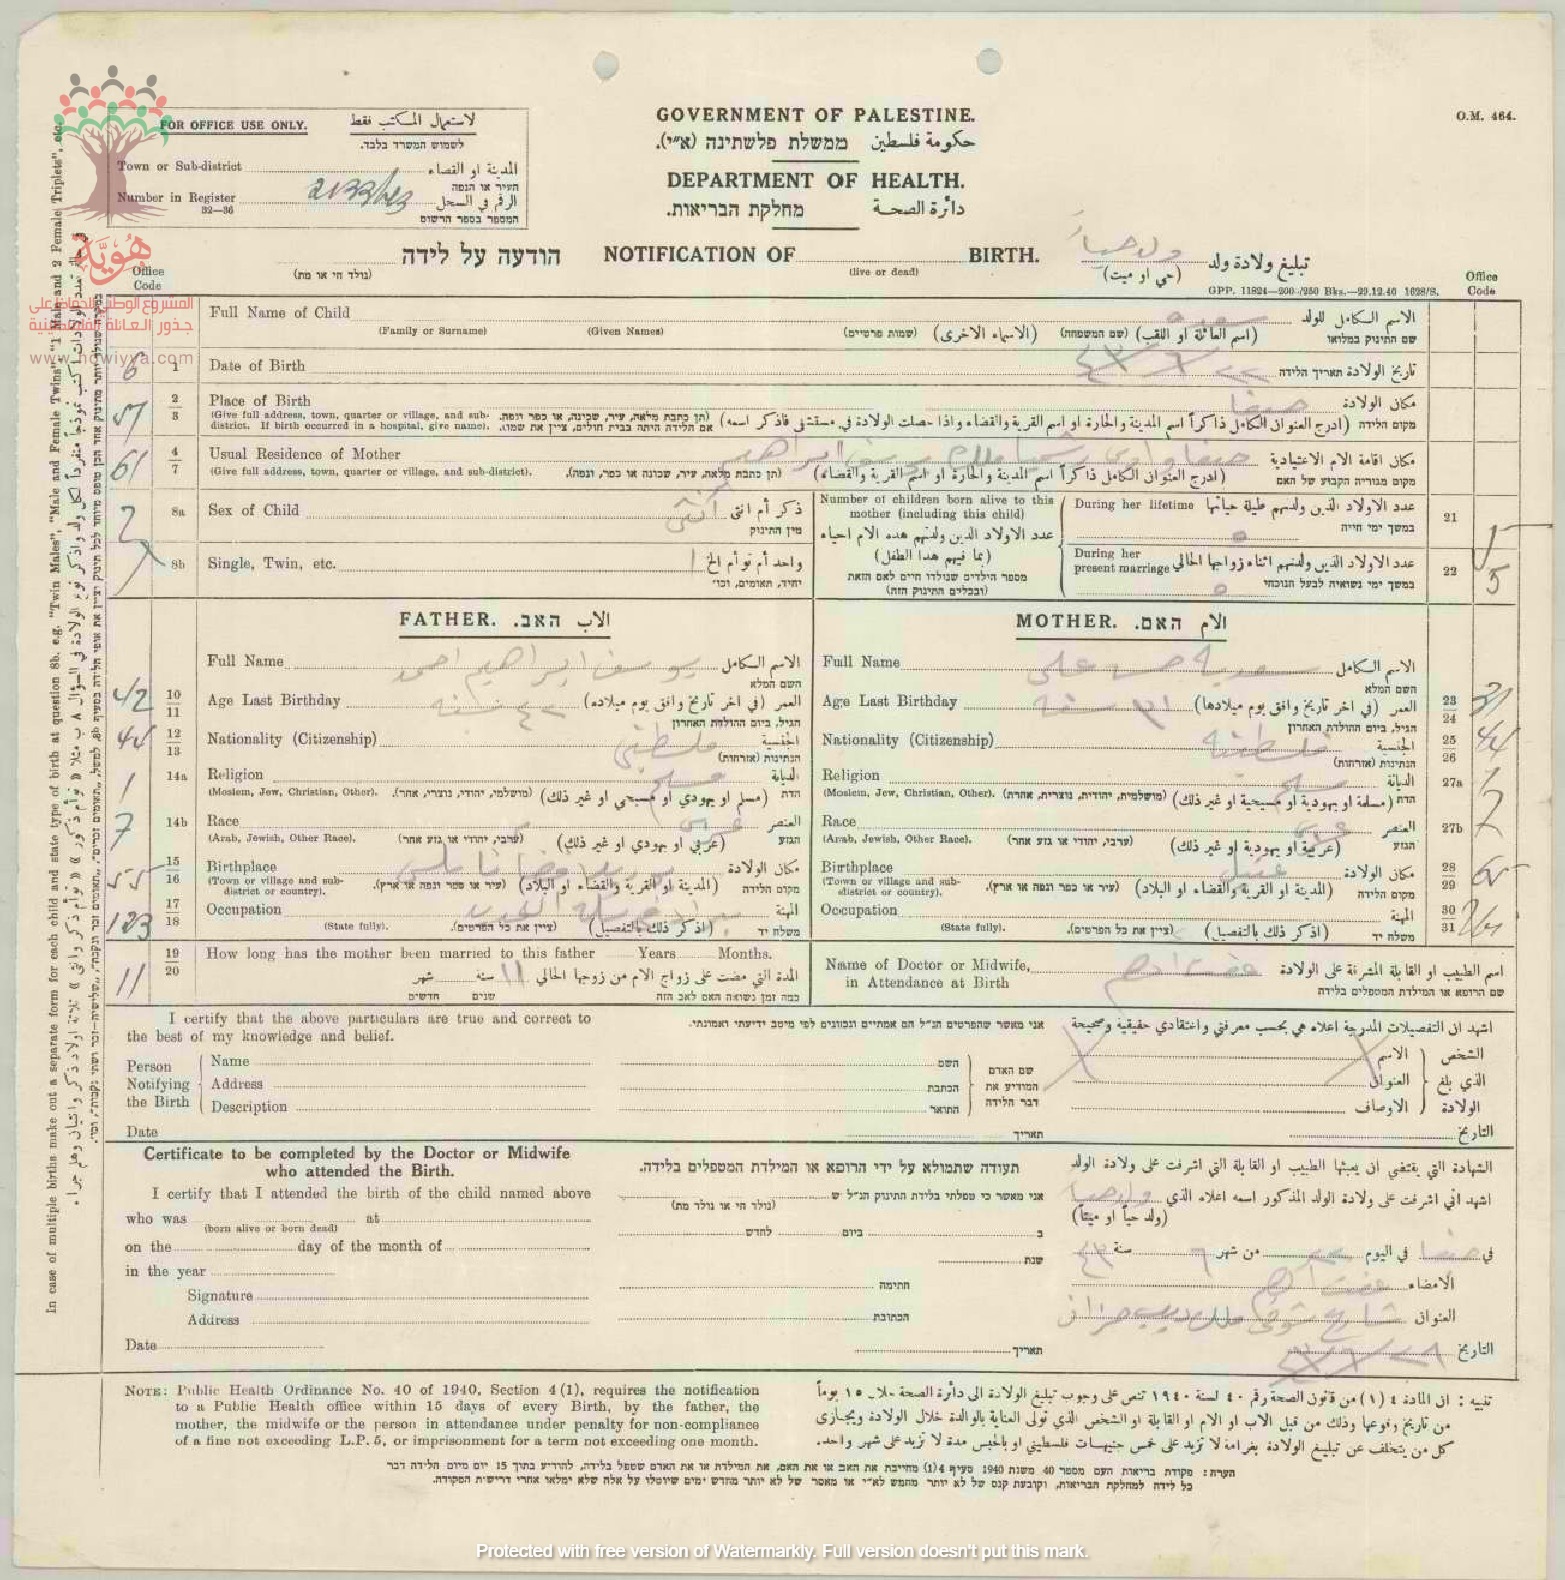 O.M. 464.
FOR OFFICE USE ONLY. لاستعمال المكتب فقط
לשמוש המשרד בלבד.
Town or Sub-district المدينة او القضاء
העיר או הנפה
Number in Register 2133/43 الرقم في السجل
32—36 המספר בספר הרשום
GOVERNMENT OF PALESTINE.
حكومة فلسطين ממשלת פלשתינה (א״י).
DEPARTMENT OF HEALTH.
دائرة الصحة מחלקת הבריאות.
הודעה על לידה NOTIFICATION OF BIRTH. تبليغ ولادة ولد ولد حياً
(נולד חי או מת) (live or dead) (حي او ميت)
GPP. 11824—200 /250 Bks.—29.12.40 1628/S.
Office Code
Office Code
هوية
المشروع الوطني للحفاظ على
جذور العائلة الفلسطينية
www.howiyya.com
In case of multiple births make out a separate form for each child and state type of birth at question 8b. e.g. "Twin Males", "Male and Female Twins", "1 Male and 2 Female Triplets", etc.
Full Name of Child الاسم الكامل للولد
(Family or Surname) (Given Names) (שמות פרטיים) (الاسماء الاخرى) (שם המשפחה) (اسم العائلة او اللقب) שם התינוק במלואו
6 1 Date of Birth ٢٢/٦/٤٣ تاريخ الولادة תאריך הלידה
57 2/3 Place of Birth حيفا مكان الولادة
(Give full address, town, quarter or village, and sub-district. If birth occurred in a hospital, give name). (תן כתבת מלאה, עיר, שכונה, או כפר ונפה. אם הלידה היתה בבית חולים, ציין את שמו). (ادرج العنوان الكامل ذاكراً اسم المدينة والحارة او اسم القرية والقضاء واذا حصلت الولادة في مستشفى فاذكر اسمه) מקום הלידה
61 4/7 Usual Residence of Mother حيفا وادي رشميا ملك يوسف ابراهيم مكان اقامة الام الاعتيادية
(Give full address, town, quarter or village, and sub-district). (תן כתבת מלאה, עיר, שכונה או כפר, ונפה). (ادرج العنوان الكامل ذاكراً اسم المدينة والحارة او اسم القرية والقضاء) מקום מגוריה הקבוע של האם
2 8a Sex of Child انثى ذكر أم انثى
מין התינוק
8b Single, Twin, etc. ١ واحد أم توأم الخ
יחיד, תאומים, וכו׳
Number of children born alive to this mother (including this child)
عدد الاولاد الذين ولدتهم هذه الام احياء (بما فيهم هذا الطفل)
מספר הילדים שנולדו חיים לאם הזאת (ובכללם התינוק הזה)
During her lifetime عدد الاولاد الذين ولدتهم طيلة حياتها 21 5
במשך ימי חייה ٥
During her present marriage عدد الاولاد الذين ولدتهم اثناء زواجها الحالي 22 5
במשך ימי נשואיה לבעל הנוכחי ٥
FATHER. الاب האב.
Full Name يوسف ابراهيم احمد الاسم الكامل
השם המלא
42 10/11 Age Last Birthday ٤٢ سنة العمر (في اخر تاريخ وافق يوم ميلاده)
הגיל, ביום ההולדת האחרון
44 12/13 Nationality (Citizenship) فلسطيني الجنسية
הנתינות (אזרחות)
1 14a Religion مسلم الديانة
(Moslem, Jew, Christian, Other). (מושלמי, יהודי, נוצרי, אחר). (مسلم او يهودي او مسيحي او غير ذلك) הדת
7 14b Race عربي العنصر
(Arab, Jewish, Other Race). (ערבי, יהודי או גזע אחר) (عربي او يهودي او غير ذلك) הגזע
55 15/16 Birthplace مكان الولادة
(Town or village and sub-district or country). (עיר או כפר ונפה או ארץ). (المدينة او القرية والقضاء او البلاد) מקום הלידה
123 17/18 Occupation المهنة
(State fully). (ציין את כל הפרטים). (اذكر ذلك بالتفصيل) משלח יד
MOTHER. الام האם.
Full Name سورية حسن علي الاسم الكامل
השם המלא
Age Last Birthday ٣١ سنة العمر (في اخر تاريخ وافق يوم ميلادها) 23/24 31
הגיל, ביום ההולדת האחרון
Nationality (Citizenship) فلسطينية الجنسية 25/26 44
הנתינות (אזרחות)
Religion مسلمة الديانة 27a 1
(Moslem, Jew, Christian, Other). (מושלמית, יהודית, נוצרית, אחרת). (مسلمة او يهودية او مسيحية او غير ذلك) הדת
Race عربية العنصر 27b 7
(Arab, Jewish, Other Race). (ערבי, יהודי או גזע אחר) (عربية او يهودية او غير ذلك) הגזע
Birthplace عتيل مكان الولادة 28/29
(Town or village and sub-district or country). (עיר או כפר ונפה או ארץ). (المدينة او القرية والقضاء او البلاد) מקום הלידה
Occupation المهنة 30/31
(State fully). (ציין את כל הפרטים). (اذكر ذلك بالتفصيل) משלח יד
11 19/20 How long has the mother been married to this father Years Months.
المدة التي مضت على زواج الام من زوجها الحالي ١١ سنة شهر
כמה זמן נשואה האם לאב הזה שנים חדשים
Name of Doctor or Midwife, in Attendance at Birth اسم الطبيب او القابلة المشرفة على الولادة
שם הרופא או המילדת המטפלים בלידה
I certify that the above particulars are true and correct to the best of my knowledge and belief.
אני מאשר שהפרטים הנ״ל הם אמתיים ונכונים לפי מיטב ידיעתי ואמונתי.
اشهد ان التفصيلات المدرجة اعلاه هي بحسب معرفتي واعتقادي حقيقية وصحيحة
Person Notifying the Birth
Name השם الاسم
Address הכתבת العنوان
Description התואר الاوصاف
שם האדם המודיע את דבר הלידה
الشخص الذي بلغ الولادة
Date תאריך التاريخ
Certificate to be completed by the Doctor or Midwife who attended the Birth.
תעודה שתמולא על ידי הרופא או המילדת המטפלים בלידה.
الشهادة التي يقتضي ان يعبئها الطبيب او القابلة التي اشرفت على ولادة الولد
I certify that I attended the birth of the child named above
אני מאשר כי טפלתי בלידת התינוק הנ״ל ש
اشهد اني اشرفت على ولادة الولد المذكور اسمه اعلاه الذي ولد حيا
who was at
(born alive or born dead) (נולד חי או נולד מת) (ولد حياً او ميتاً)
on the day of the month of ב ביום לחדש
في حيفا في اليوم ٢٢ من شهر ٦ سنة ٤٣
in the year שנת
Signature חתימה الامضاء
Address הכתובת العنوان
Date תאריך التاريخ ٢٨/٦/٤٣
NOTE: Public Health Ordinance No. 40 of 1940, Section 4(1), requires the notification
to a Public Health office within 15 days of every Birth, by the father, the
mother, the midwife or the person in attendance under penalty for non-compliance
of a fine not exceeding L.P. 5, or imprisonment for a term not exceeding one month.
تنبيه : ان المادة ٤ (١) من قانون الصحة رقم ٤٠ لسنة ١٩٤٠ تنص على وجوب تبليغ الولادة الى دائرة الصحة خلال ١٥ يوماً
من تاريخ وقوعها وذلك من قبل الاب او الام او القابلة او الشخص الذي تولى العناية بالوالدة خلال الولادة ويجازى
كل من يتخلف عن تبليغ الولادة بغرامة لا تزيد على خمس جنيهات فلسطيني او بالحبس مدة لا تزيد على شهر واحد.
הערה: פקודת בריאות העם מספר 40 משנת 1940 סעיף 4(1) מחייבת את האב או את האם, את המילדת או את האדם שטפל בלידה, להודיע בתוך 15 יום מיום הלידה דבר
כל לידה למחלקת הבריאות, וקובעת קנס של לא יותר מחמש לא״י או מאסר של לא יותר מחדש ימים שיוטלו על אלה שלא ימלאו אחרי דרישת הפקודה.
Protected with free version of Watermarkly. Full version doesn't put this mark.